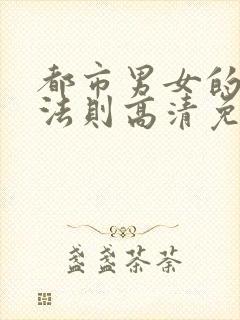 都市男女的
法則高清免
盏盏茶荼